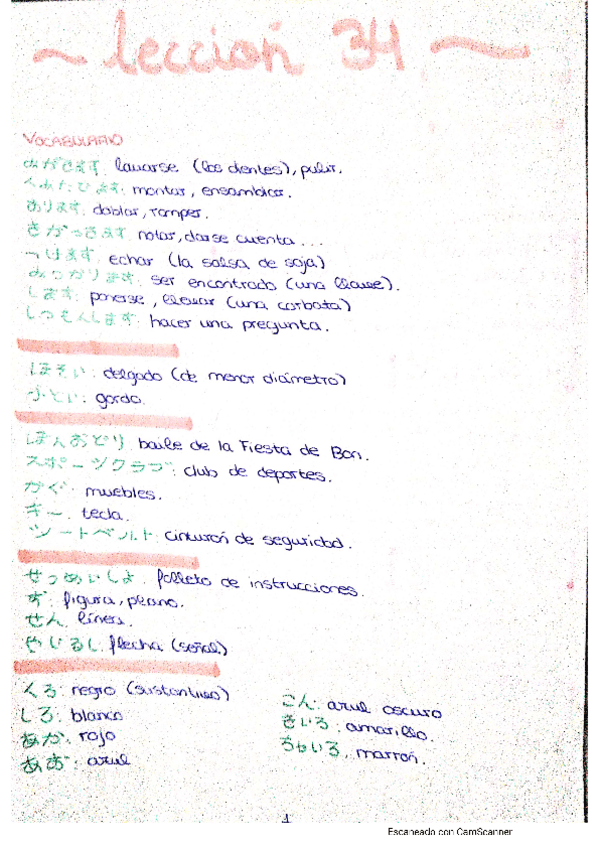 ~ lección 34 ~
VOCABULARIO
みがきます: lavarse (los dientes), pulir.
くみたてます: montar, ensamblar.
おります: doblar, romper.
きがつきます: notar, darse cuenta...
つけます: echar (la salsa de soja)
みつかります: ser encontrado (una llave).
します: ponerse, llevar (una corbata)
しつもんします: hacer una pregunta.
ほそい: delgado (de menor diámetro)
ふとい: gordo.
ぼんおどり: baile de la Fiesta de Bon.
スポーツクラブ: club de deportes.
かぐ: muebles.
キー: tecla.
シートベルト: cinturón de seguridad.
せつめいしょ: folleto de instrucciones.
ず: figura, plano.
せん: línea.
やじるし: flecha (señal)
くろ: negro (sustantivo)
しろ: blanco
あか: rojo
あお: azul
こん: azul oscuro
きいろ: amarillo.
ちゃいろ: marrón.
1
Escaneado con CamScanner